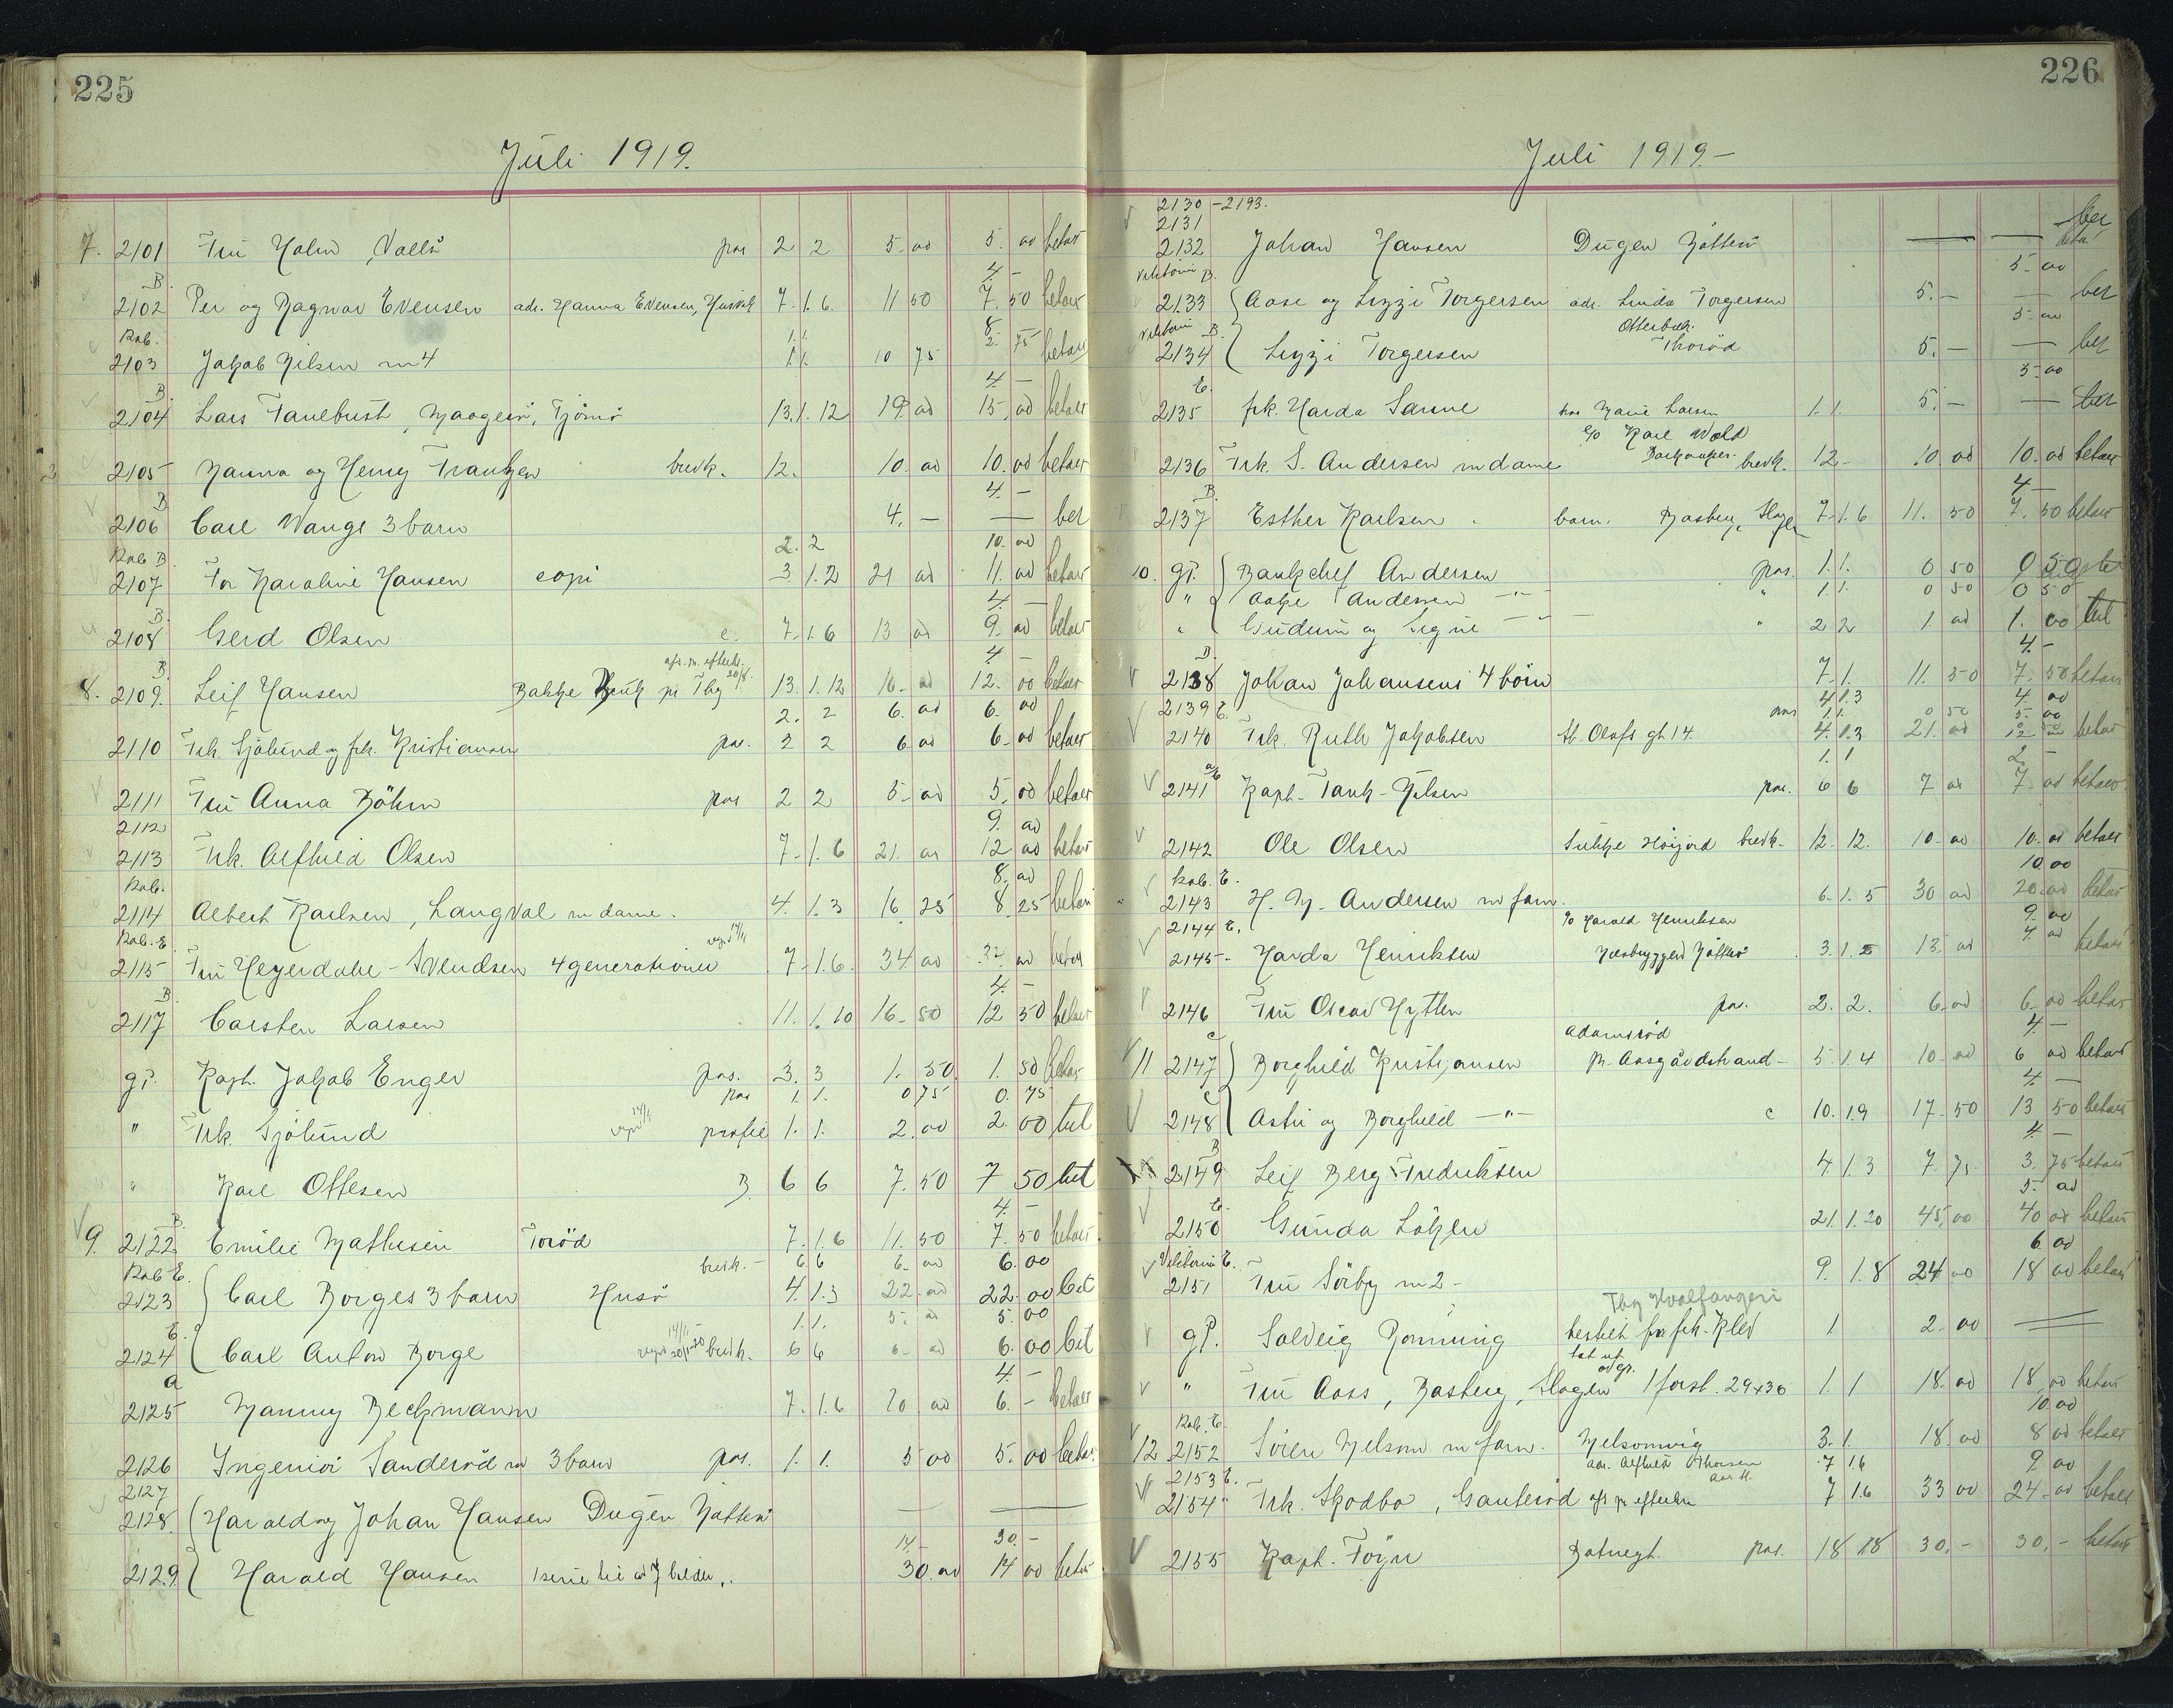 225
Juli 1919.
7. 2101 Fru Holm, Vallö pos 2 2 5. 00 5. 00 betalt
B. 4. –
2102 Per og Ragnar Evensen adr. Hanna Evensen, Husvik 7. 1. 6. 11 50 7. 50 betalt
Kab. 1. 1. 8.
2103 Jakob Nilsen m 4 1. 1. 10 75 2. 75 betalt
B. 4. –
2104 Lars Fanebust, Maagerö, Tjömö 13. 1. 12 19. 00 15. 00 betalt
2105 Nanna og Henry Frantzen brevk. 12. 10. 00 10. 00 betalt
B 4. –
2106 Carl Wangs 3 barn 4. – — bet
Kab B. 2. 2 10. 00
2107 For Karoline Hansen copi 3 1. 2 21 00 11. 00 betalt
B. 4. –
2108 Gerd Olsen c. 7. 1. 6 13 00 9. 00 betalt
B. afs. m. efterkr. 20/8. 4 –
8. 2109. Leif Hansen Bakke pr Tbg 13. 1. 12 16. 00 12. 00 betalt
2. 2 6. 00 6. 00
2110 Frk. Sjölund og frk. Kristiansen pos. 2 2 6 00 6. 00 betalt
2111 Fru Anna Böhm pos 2 2 5. 00 5. 00 betalt
2112 9. 00
2113 Frk. Alfhild Olsen 7. 1. 6 21. 00 12 00 betalt
Kab. 8. 00
2114 Albert Karlsen, Langval m dame. 4. 1. 3 16 25 8. 25 betalt
Kab. E. 14/11
2115 Fru Heyerdahl-Svendsen 4 generationer 7. 1. 6. 34 00 34 00 betalt
B 4. –
2117 Carsten Larsen 11. 1. 10 16. 50 12 50 betalt
gp. Kapt. Jakob Enger pos. 3. 3 1. 50 1. 50 betalt
pos 1. 1. 0 75 0. 75
" Frk. Sjölund 14/11 profil 1. 1. 2. 00 2. 00 bet
" Karl Ottesen B 6 6 7. 50 7 50 bet
B. 4. –
9. 2122 Emilie Mathisen Toröd 7. 1. 6 11. 50 7. 50 betalt
Kab E. brevk. – 6 6 6. 00 6. 00
2123 Carl Borges 3 barn Husö 4. 1. 3 22. 00 22. 00 bet
E. 1. 1. 5. 00 5. 00
2124 Carl Anton Borge 14/11 brevk. 6 6 6. 00 6. 00 bet
a 4. –
2125 Nanny Beckmann 7. 1. 6 10 00 6. – betalt
2126 Ingeniör Sanderöd m 3 barn pos. 1. 1. 5 00 5. 00 betalt
2127
2128. Harald og Johan Hansen Dugen Nötterö — —
14. 30. –
2129 Harald Hansen 1 serie til 7 bilder. 30. 00 14 00 betalt
226
Juli 1919 –
2130 – 2193.
2131 bet
2132 Johan Hansen Dugen Nötterö — — betalt
Viktoria B. 5. 00
2133 Aase og Lizzi Torgersen adr. Linda Torgersen 5. – — bet
Viktoria B. Otterbæk. 5. 00
2134 Lizzi Torgersen Thoröd 5. – — bet
E. 5. 00
2135 frk. Harda Sanne hos Marie Larsen 1. 1. 5. – — bet
c/o Karl Wold
2136 Frk. S. Andersen m dame brevk. 12 – 10. 00 10. 00 betalt
B. 4 –
2137 Esther Karlsen barn. Basberg, Slagen 7. 1. 6 11. 50 7. 50 betalt
10. gp. Bankchef Andersen pos. 1. 1. 0 50 0 50
" Aage Andersen – " – " 1. 1. 0 50 0 50
" Gudrun og Signe – " – " 2 2 1 00 1. 00 bet
B. 4. –
2138 Johan Johansens 4 börn 7. 1. 11. 50 7. 50 betalt
2139 E. 4 1. 3 4. 00
pos 1. 1. 0 50 5. 00
2140 Frk. Ruth Jakobsen St. Olafs gt 14. 4. 1. 3 21. 00 12 – betalt
1. 1 2. –
2141 Kapt. Tank-Nilsen pos. 6 6 7 00 7. 00 betalt
2142 Ole Olsen Sukke Höijord brevk. 12. 12. 10. 00 10. 00 betalt
Kab. E. 10. 00
2143 H. M. Andersen m fam. 6. 1. 5 30 00 20. 00 betalt
2144 E. c/o Harald Henriksen 9. 00
4. 00
2145 – Harda Henriksen Nötterö 3. 1. 2 13. 00 betalt
2146 Fru Oscar Hytten pos. 2. 2. 6. 00 6. 00 betalt
c Adamsröd 4. –
11 2147 Borghild Kristiansen pr. Aasgårdstrand – 5. 1. 4 10. 00 6 00 betalt
c 4. –
2148 Astri og Borghild – " – c 10. 1 9 17. 50 13 50 betalt
B 4. –
2149 Leif Berg Fredriksen 4. 1. 3 7. 75. 3. 75 betalt
E. 5. 00
2150 Gunda Löken 21. 1. 20 45. 00 40 00 betalt
Viktoria E. 6 00
2151 Fru Sörby m 2 – 9. 1. 8 24 00 18 00 betalt
Tbg Hvalfangeri
gp. Solveig Ronning bestilt fra frk. Kleb 1 2. 00 —
" Fru Aass, Basberg, Slagen 1 forst. 29 x 36 1. 1 18. 00 18. 00 betalt
Kab. E. 10. 00
12 2152 Sören Nelson m fam. Nelsonvig 3. 1. 18. 00 8 00 betalt
2153 E. adr. Alfhild Thorsen 7 1 6 9 00
2154 " Frk. Skodbo, Gauteröd afs pr efterkr 7 1 6 33 00 24. 00 betalt
2155 Kapt. Föyn Batnegt. pos. 18 18 30. – 30. – betalt